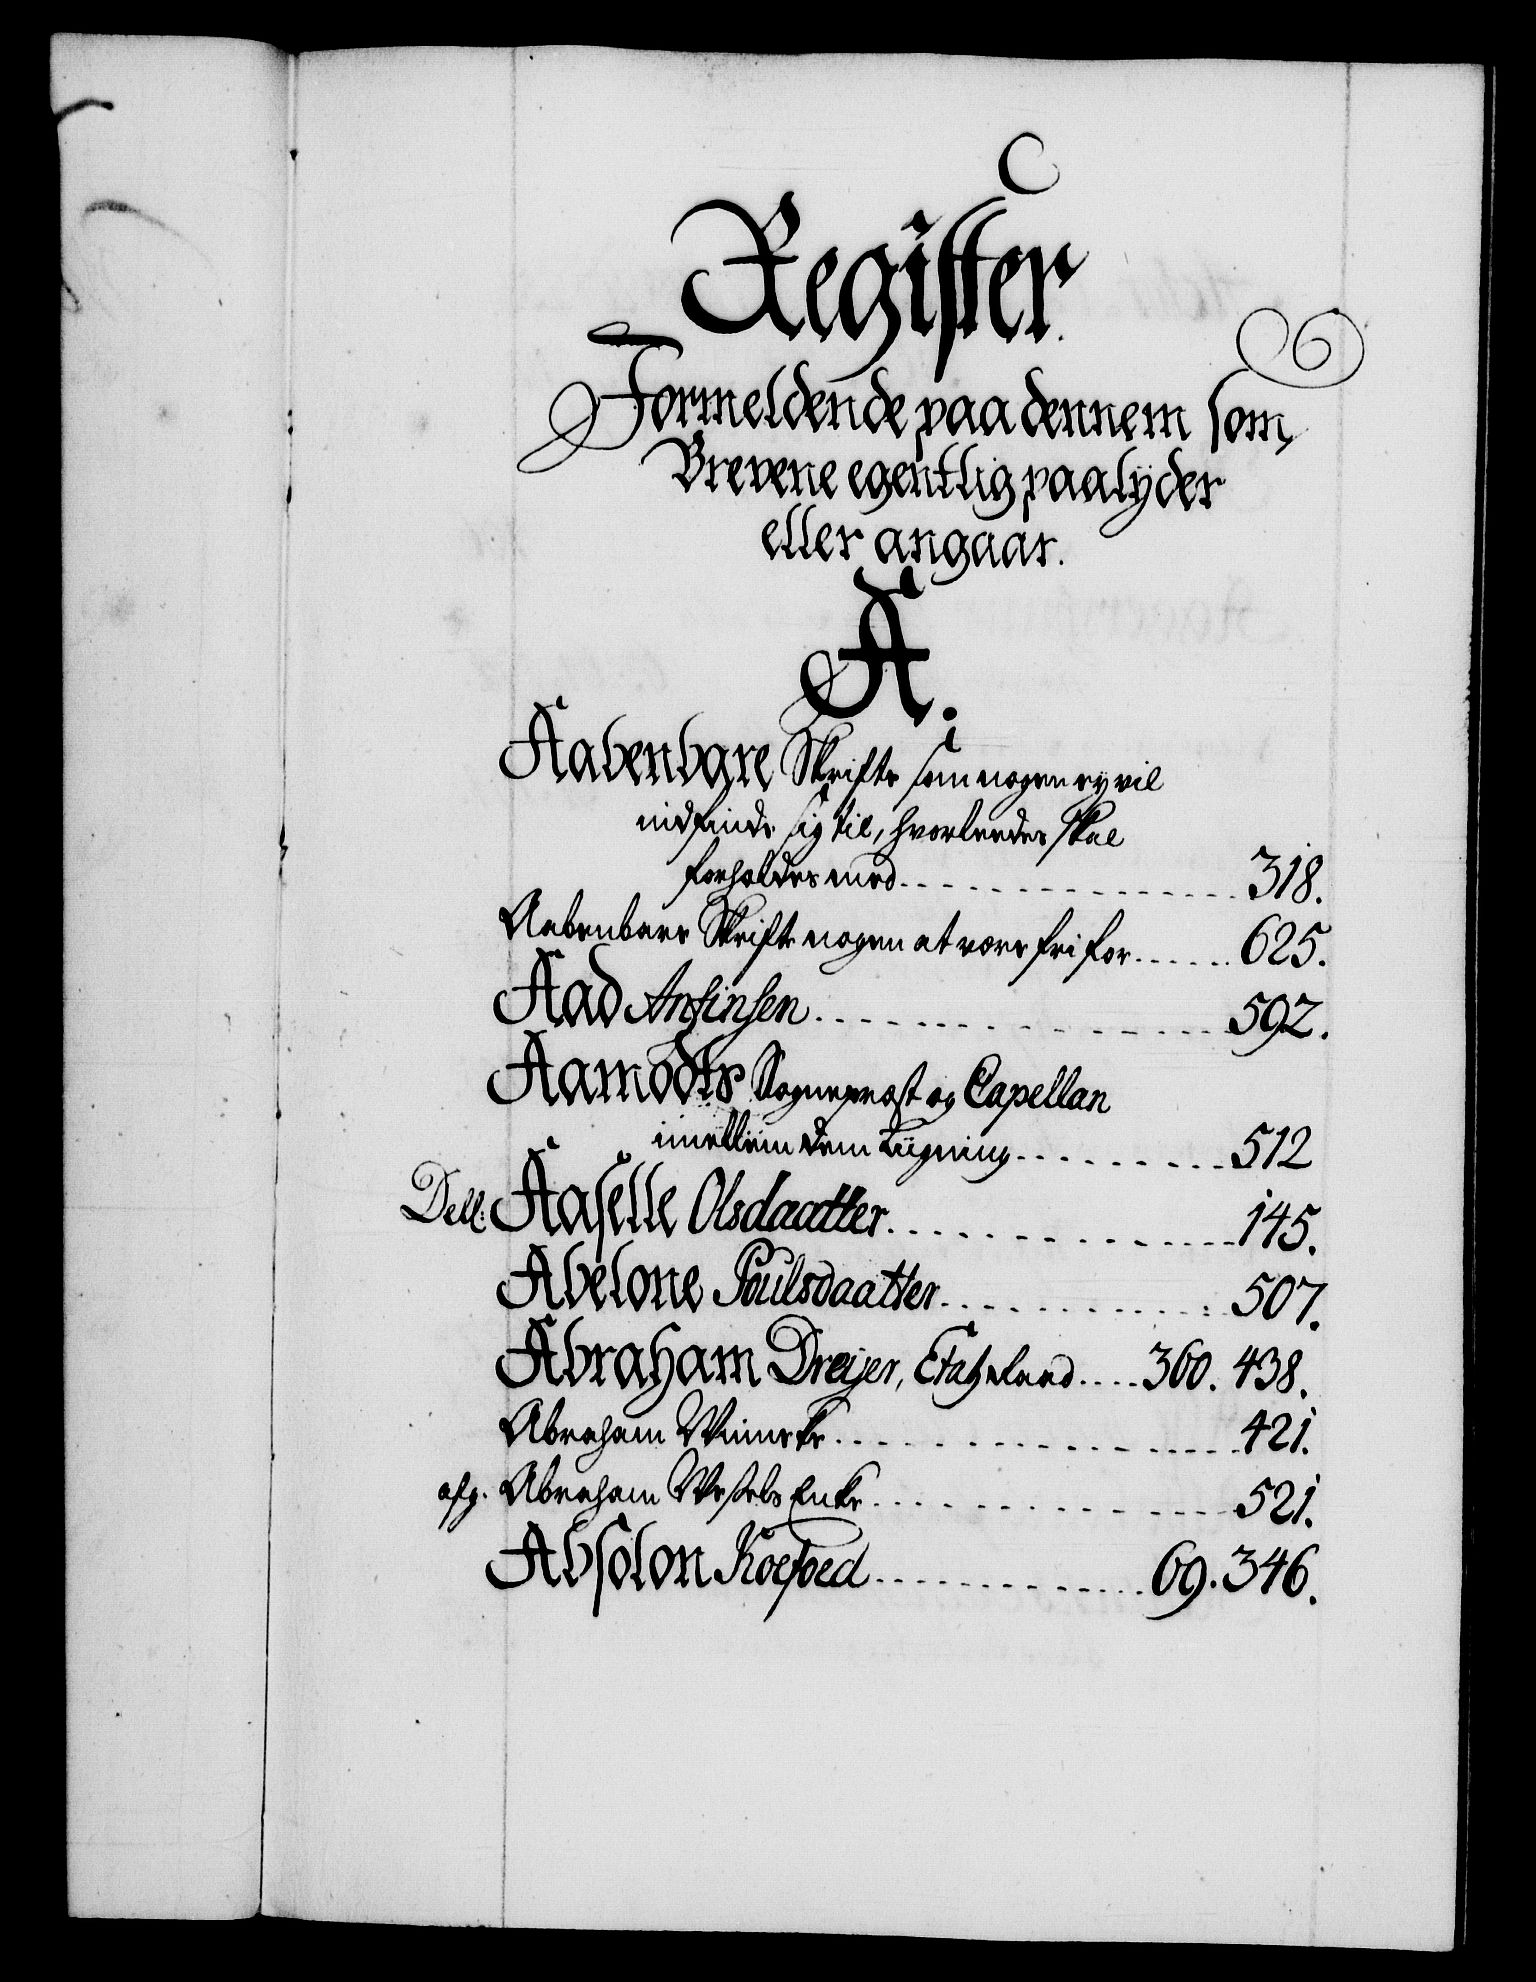 Register.
Formeldende paa dennem som
Brevene egentlig paalÿder
eller angaar.
A.
Aabenbare Skrifte som nogen ey vil
indfinde sig til, hvorleedes skal
forholdes med 318.
Aabenbare Skrifte nogen at være fri for 625.
Aad Anfinsen 592.
Aamodts Sognepræst og Capellan
imellem dem Liigning 512
Dell: Aaselle Olsdaatter 145.
Abelone Poulsdaatter 507.
Abraham Dreijer, Etatzraad 360. 438.
Abraham 421.
afg. Abraham Wessels Enke 521.
Absolon Koefoed 69. 346.